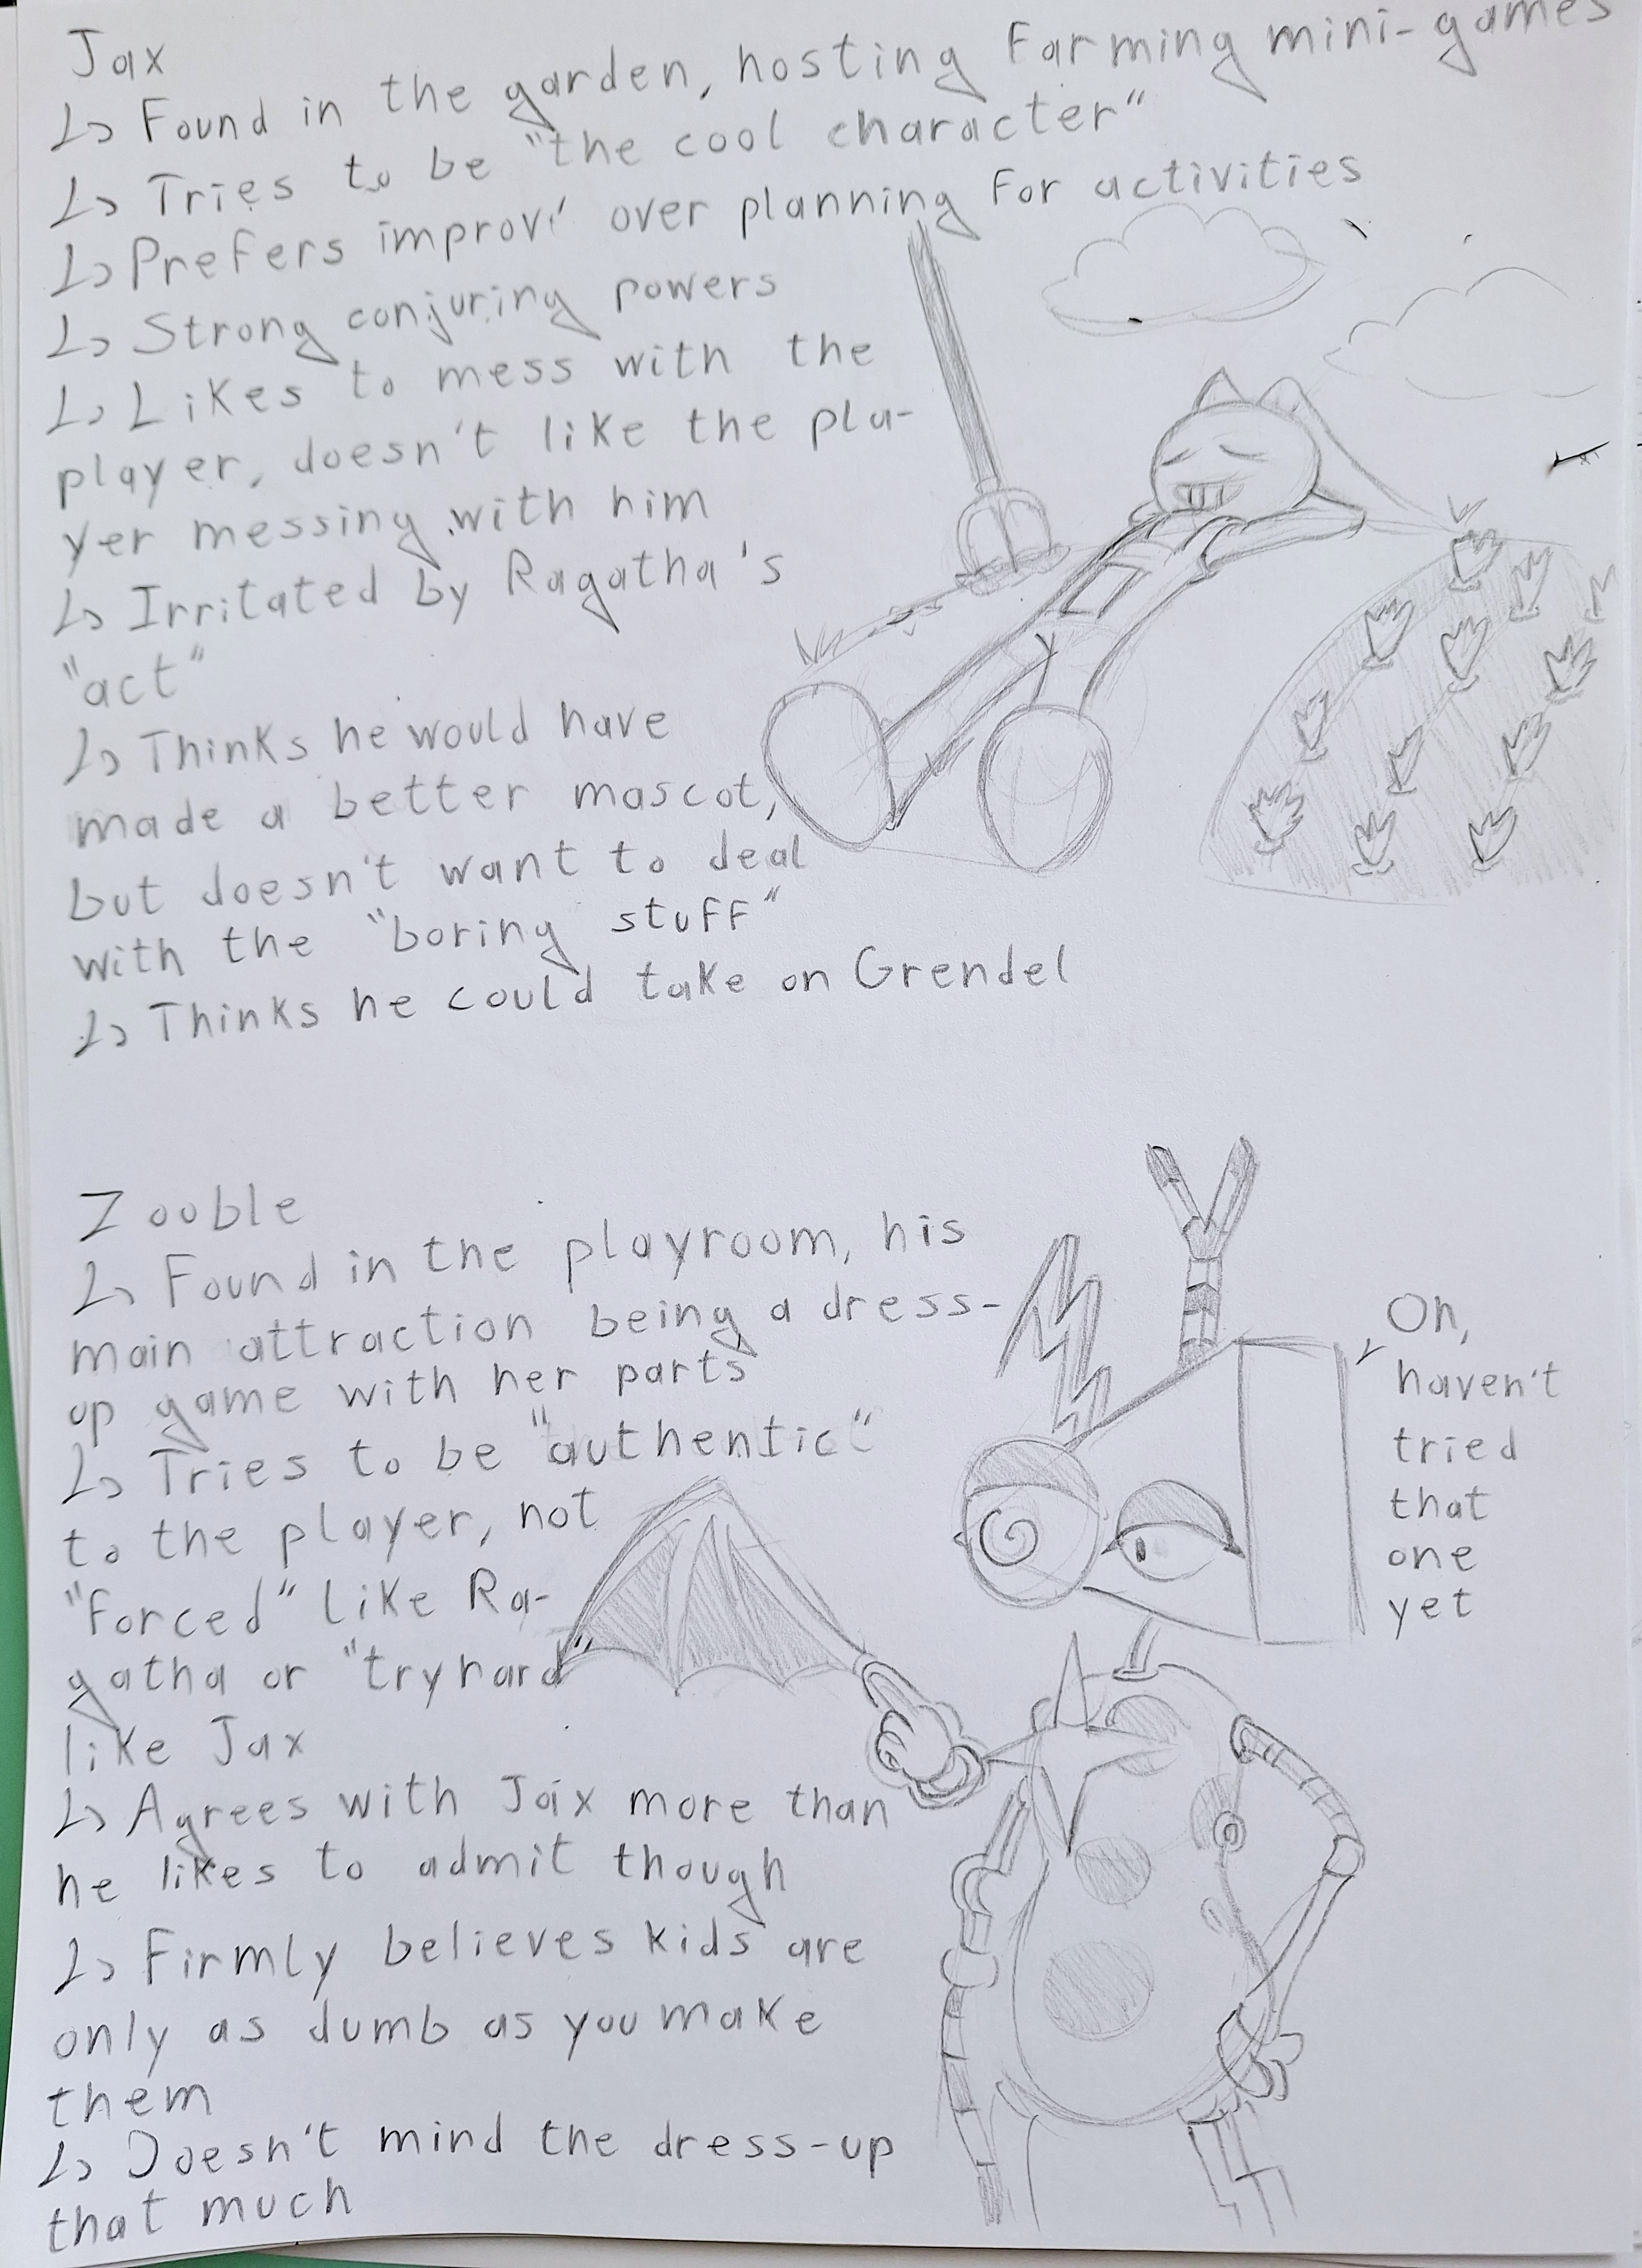 Jax
↳ Found in the garden, hosting Farming mini-games
↳ Tries to be "the cool character"
↳ Prefers improv' over planning For activities
↳ Strong conjuring powers
↳ Likes to mess with the
player, doesn't like the pla-
yer messing with him
↳ Irritated by Ragatha's
"act"
↳ Thinks he would have
made a better mascot,
but doesn't want to deal
with the "boring stuFF"
↳ Thinks he could take on Grendel
Zooble
↳ Found in the playroom, his
main attraction being a dress-
up game with her parts
↳ Tries to be "authentic"
to the player, not
"Forced" like Ra-
gatha or "tryhard"
like Jax
↳ Agrees with Jax more than
he likes to admit though
↳ Firmly believes kids are
only as dumb as you make
them
↳ Doesn't mind the dress-up
that much
Oh,
haven't
tried
that
one
yet